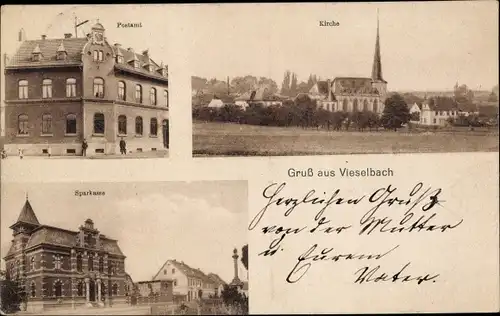 Postamt
Kirche
Sparkasse
Gruß aus Vieselbach
Herzlichen Gruß
von der Mutter
u Eurem
Vater.